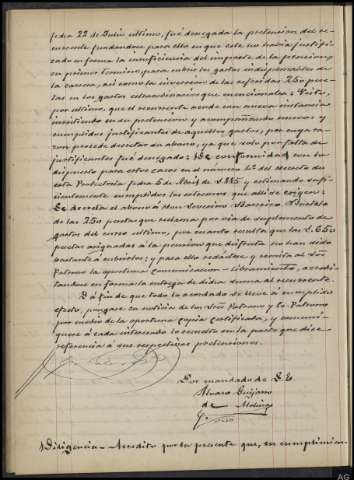 fecha 22 de Julio ultimo, fué denegada la pretension del re-
currente fundandose para ello en que este no habia justifi-
cado en forma la insuficiencia del importe de la pension,
en primer termino, para cubrir los gastos indispensables de
la carrera, asi como la inversion de las referidas 250 pese-
tas en los gastos extraordinarios que mencionaba: Visto,
por ultimo, que el recurrente acude con nueva instancia
insistiendo en su pretension y acompañando nuevos y
cumplidos justificantes de aquellos gastos, por cuya ra-
zon procede decretar su abono, ya que solo por falta de
justificantes fué denegado; De conformidad con lo
dispuesto para estos casos en el número 4º del decreto de
esta Protectoria fecha 5 de Abril de 1.885 y estimando sufi-
cientemente cumplidos los extremos que alli se exigen:
Se decreta el abono á Don Severino
de las 250 pesetas que reclama por via de suplemento de
gastos del curso ultimo, por cuanto resulta que las 1.650
pesetas asignadas á la pension que disfruta no han sido
bastante á cubrirlos; y para ello redáctese y remita al Sr.
Patrono la oportuna comunicacion-libramiento, acredi-
tandose en forma la entrega de dicha suma al recurrente.
Y á fin de que todo lo acordado se lleve á cumplido
efecto, pongase en noticia de los Sres Patrono y Co-Patrono
por medio de la oportuna copia certificada, y comuni-
quese á cada interesado lo resuelto en la parte que dice
referencia á sus respectivas pretensiones.
Por mandado de S. E.
Alvaro Guijarro
de Molina
Srio
Diligencia - Acredito por la presente que, en cumplimien-
AG